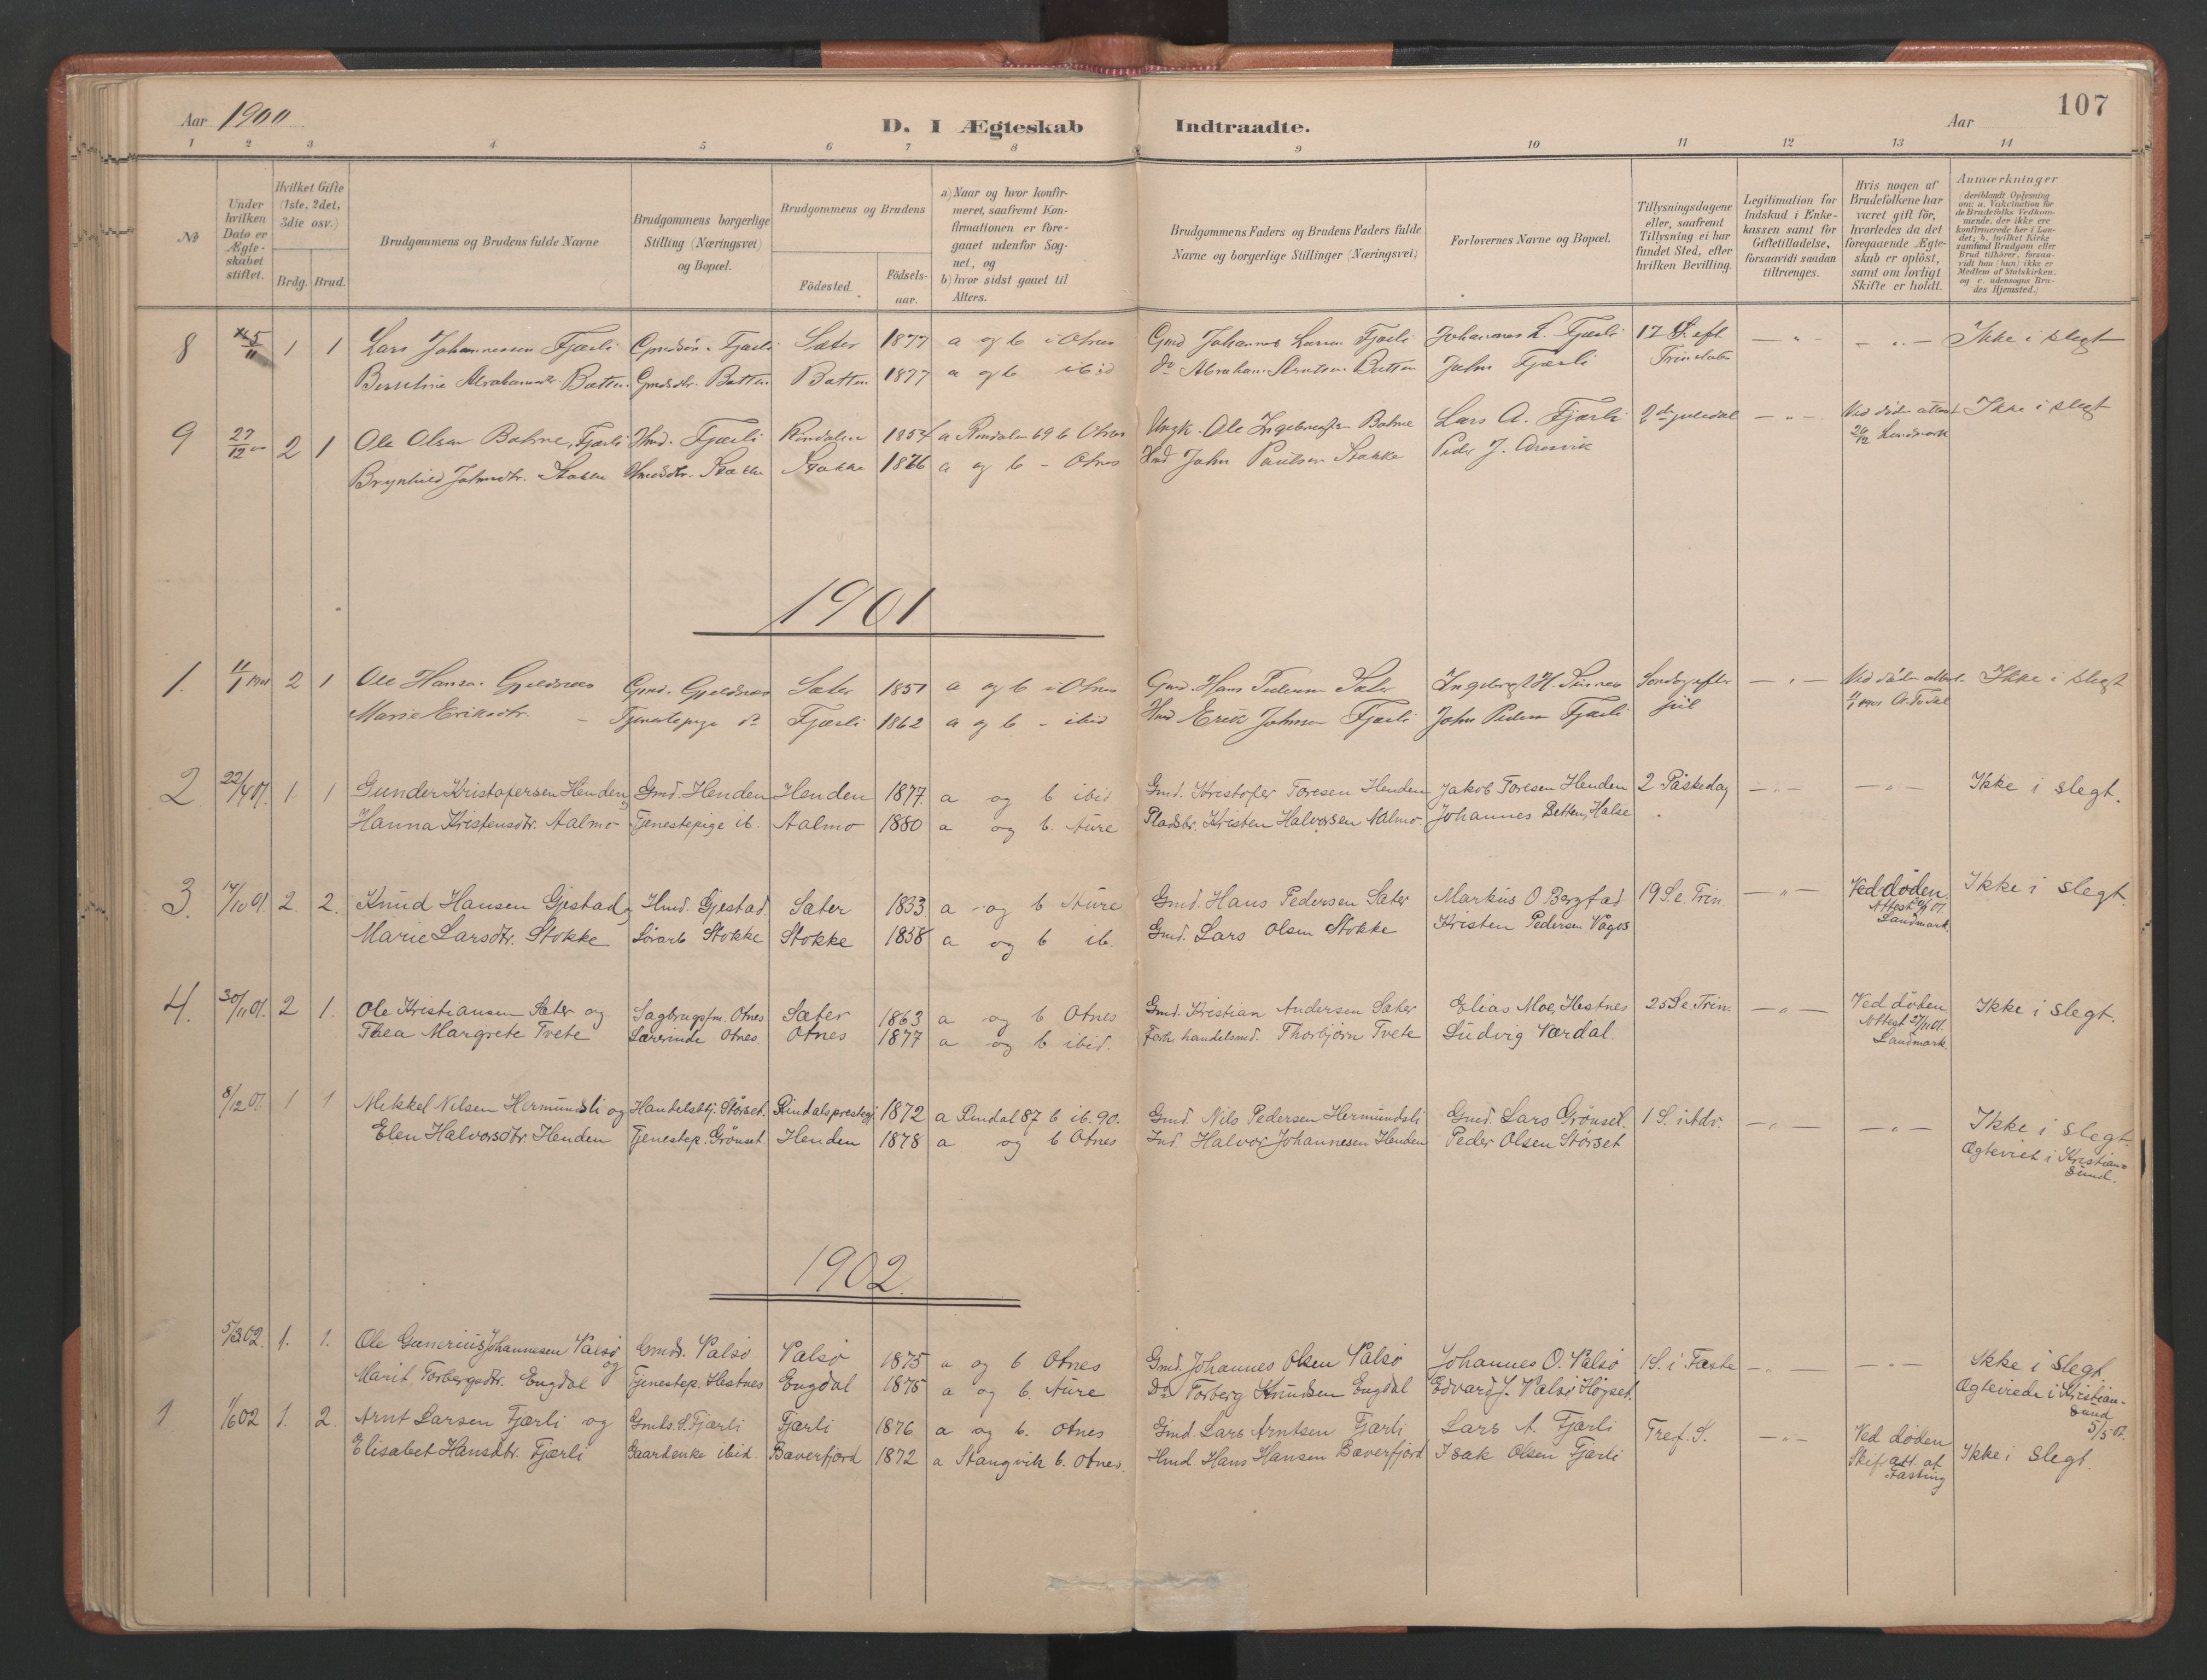 107
Aar 1900 D. I Ægteskab Indtraadte. Aar
1 2 3 4 5 6 7 8 9 10 11 12 13 14
№
Under hvilken Dato er Ægteskabet stiftet.
Hvilket Gifte (1ste, 2det, 3die osv.)
Brdg. Brud.
Brudgommens og Brudens fulde Navne
Brudgommens borgerlige Stilling (Næringsvei) og Bopæl.
Brudgommens og Brudens
Födested.
Födselsaar.
a) Naar og hvor konfirmeret, saafremt Konfirmationen er foregaaet udenfor Sognet, og
b) hvor sidst gaaet til Alters.
Brudgommens Faders og Brudens Faders fulde Navne og borgerlige Stillinger (Næringsvei)
Forlovernes Navne og Bopæl.
Tillysningsdagene eller, saafremt Tillysning ei har fundet Sted, efter hvilken Bevilling.
Legitimation for Indskud i Enkekassen samt for Giftetilladelse, forsaavidt saadan tiltrænges.
Hvis nogen af Brudefolkene har været gift för, hvorledes da det foregaaende Ægteskab er oplöst, samt om lovligt Skifte er holdt.
Anmærkninger (deriblandt Oplysning om: a. Vakcination for de Brudefolks Vedkommende, der ikke ere konfirmerede her i Landet; b. hvilket Kirkesamfund Brudgom eller Brud tilhører, forsaavidt han (hun) ikke er Medlem af Statskirken, og c. udensogns Brudes Hjemsted.)
8 5/11 1 1 Lars Johannessen Fjærli Gmdsön. Fjærli Sæter 1877 a og b i Otnes Gmd Johannes Larsen Fjærli Johannes L. Fjærli 17 S. eft. — " — — " — Ikke i slegt
Berseline Abrahamsdr. Botten Gmdsdtr. Botten Botten 1877 a og b ibid Do Abraham Arntsen Botten John Fjærli Trinitatis
9 27/12 00 2 1 Ole Olsen Bohne, Fjærli Hmd. Fjærli Rindalen 1854 a Rindalen 69 b Otnes Ungk. Ole Ingebrigtsen Bohne Lars A. Fjærli 2den juledal — " — Ved døden attest Ikke i slegt
Brynhild Johnsdtr. Stokke Hmdsdtr. Stokke Stokke 1866 a og b - Otnes Hmd John Paulsen Stokke Peder J. 26/12 Landmark
1901
1. 11/1 1901 2 1 Ole Hansen Gjeldnes Gmd. Gjeldnes Sæter 1851 a og b i Otnes Gmd. Hans Pedersen Sæter Ingebrigt H. Søndag efter — " — Ved døden attest Ikke i slegt
Marie Eriksdtr. — Tjenestepige do Fjærli 1862 a og b - ibid Hmd Erik Johnsen Fjærli John Pedersen Fjærli jul
2. 22/4 01. 1. 1 Gunder Kristofersen Henden Gmd. Henden Henden 1877 a og b ibid Gmd. Kristofer Toresen Henden Jakob Toresen Henden 2 Påskedag — " — — " — Ikke i slegt.
Hanna Kristensdtr. Aalmo Tjenestepige ib. Aalmo 1880 a og b. Aure Pladsbr. Kristen Halvorsen Aalmo Johannes Betten, Halse
3. 14/10 01. 2. 2. Knud Hansen Gjestad og Hmd. Gjestad Sæter 1833 a og b Aure Gmd. Hans Pedersen Sæter Markus O Bergfad 19 S.e. Trin. — " — Ved døden. Ikke i slegt.
Marie Larsdtr. Stokke Stokke Stokke 1838 a og b ib. Gmd. Lars Olsen Stokke Kristen Pedersen Vagos Attest 01. Landmark.
4. 30/11 01. 2 1. Ole Kristiansen Sæter og Sagbrugsfm. Otnes Sæter 1863 a og b Otnes Gmd. Kristian Andersen Sæter Elias Moe, Hestnes 25 S.e. Trin. — " — Ved døden Ikke i slegt.
Thea Margrete Tvete Lærerinde Otnes. Otnes 1877 a og b ibid. Forh. handelsmd. Thorbjørn Tvete Ludvig Værdal. Attest 27/11 01. Landmark.
8/12 01. 1 1 Mikkel Nilsen Hermundsli og Handelsbtj. Störset. Rindalsprestegj 1872 a Rindal 87 b ib. 90. Gmd. Nils Pedersen Hermundsli Gmd. Lars Grønset. 1 S. i Adv. — " — — " — Ikke i slegt.
Elen Halvorsdtr. Henden Tjenestep. Grönset Henden 1878 a og b Otnes Ind. Halvor Johannesen Henden Peder Olsen Störset Ægteviet i Kristiansund.
1902.
5/3 02. 1. 1. Ole Gunerius Johannesen Valsö og Gmds. Valsö Valsö 1875 a og b Otnes Gmd. Johannes Olsen Valsö Johannes O. Valsö 1 S. i Faste — " — — " — Ikke i slegt.
Marit Torbergsdtr. Engdal Tjenestep. Hestnes Engdal 1875 a og b. Aure Do Torberg Knudsen Engdal Edvard J. Valsö Högset. Ægteviede i Kristiansund 5/5 02.
1 1/6 02 1. 2. Arnt Larsen Fjærli og Gmds. S. Fjærli Fjærli 1876 a og b. Otnes Gmd. Lars Arntsen Fjærli Lars A. Fjærli Tref. S. — " — Ved døden
Elisabet Hansdtr. Fjærli Gaardenke ibid. Bæverfjord 1872 a Stangvik b. Otnes. Hmd. Hans Hansen Bæverfjord Isak Olsen Fjærli Skift att. af Fasting Ikke i slegt.